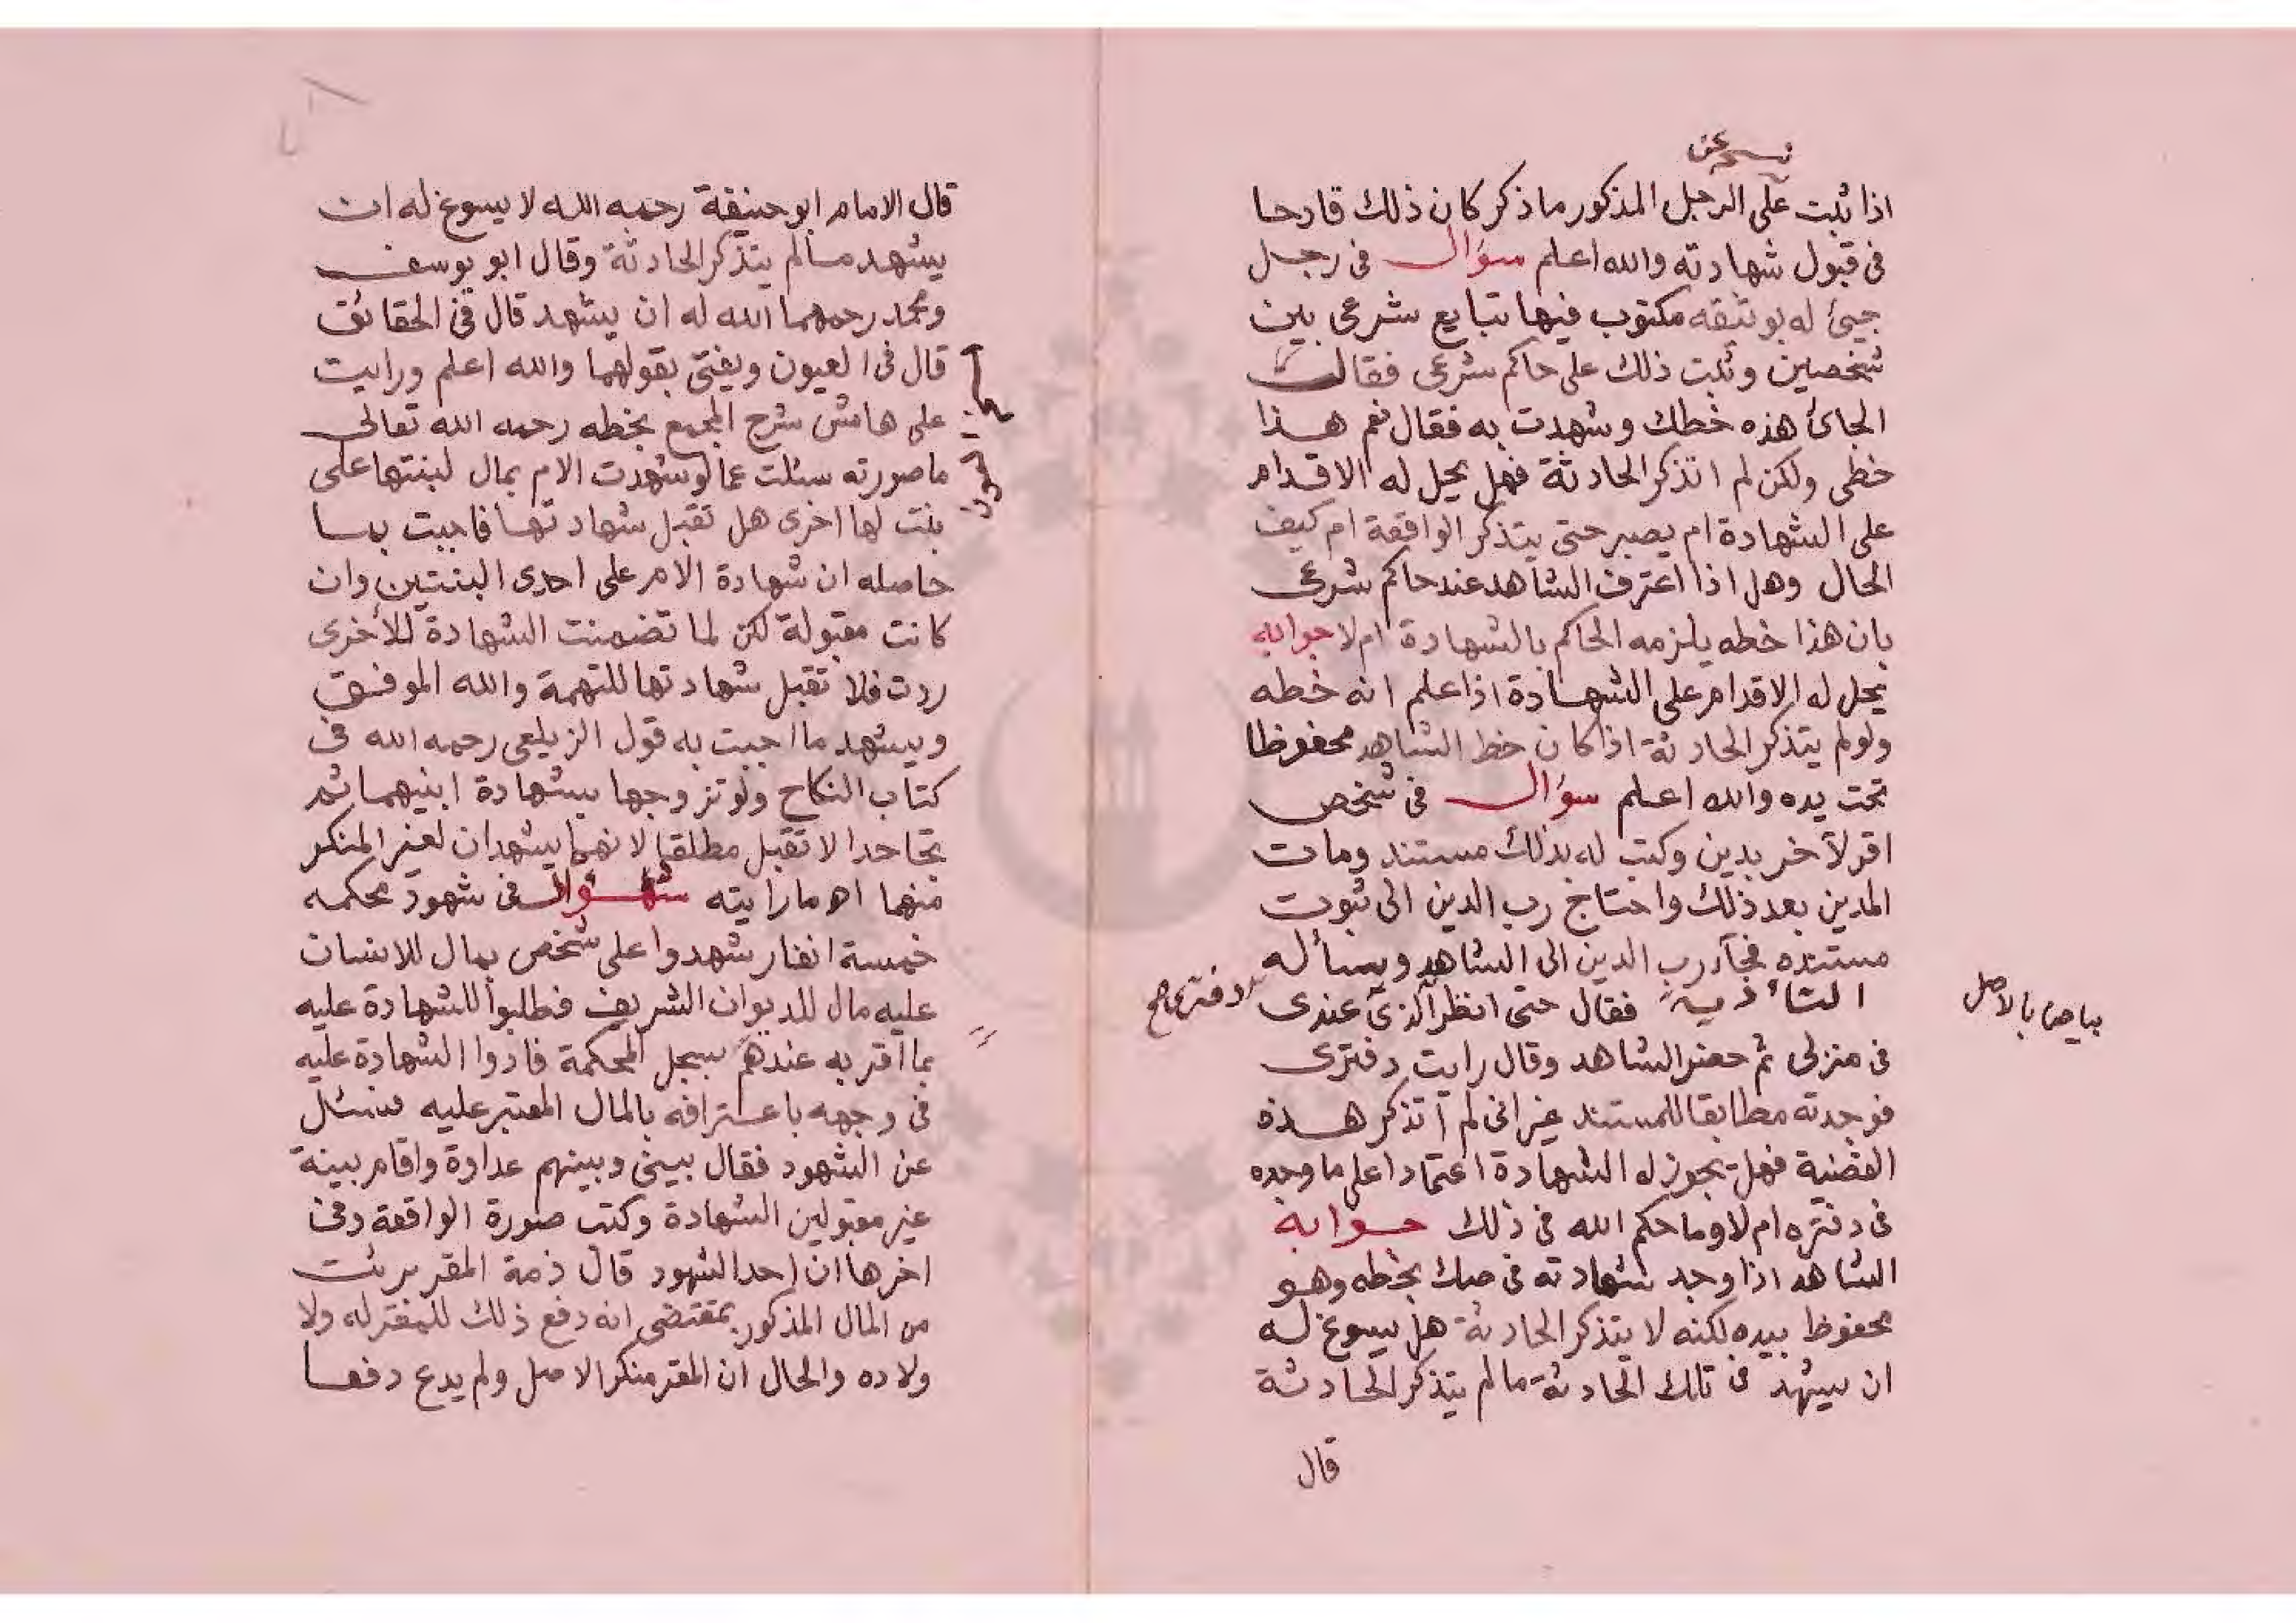 نسخة عن
اذا ثبت على الرجل المذكور ما ذكر كان ذلك قادحا
فى قبول شهادته والله اعلم سؤال فى رجل
جيئ له بوثيقه مكتوب فيها تبايع شرعى بين
شخصين وثبت ذلك على حاكم شرعى فقال
الجائ هذه خطك وشهدت به فقال نعم هذا
خطى ولكن لم اتذكر الحادثة فهل يحل له الاقدام
على الشهادة ام يصبر حتى يتذكر الواقعة ام كيف
الحال وهل اذا اعترف الشاهد عند حاكم شرعى
بان هذا خطه يلزمه الحاكم بالشهادة ام لا جوابه
يحل له الاقدام على الشهادة اذا علم انه خطه
ولو لم يتذكر الحادثة اذا كان خط الشاهد محفوظا
تحت يده والله اعلم سؤال فى شخص
اقر لآخر بدين وكتب له بذلك مستند ومات
المدين بعد ذلك واحتاج رب الدين الى ثبوت
مستنده فجآء رب الدين الى الشاهد ويسأله
فقال حتى انظر الذى عندى
دفتر صح
بياض بالاصل
فى منزلى ثم حضر الشاهد وقال رايت دفترى
فوجدته مطابقا للمستند غير انى لم اتذكر هذه
القضية فهل يجوز له الشهادة اعتمادا على ما وجده
فى دفتره ام لا وما حكم الله فى ذلك جوابه
الشاهد اذا وجد شهادته فى صك بخطه وهو
محفوظ بيده لكنه لا يتذكر الحادثة هل يسوغ له
ان يشهد فى تلك الحادثة ما لم يتذكر الحادثة
قال
قال الامام ابو حنيفة رحمه الله لا يسوغ له ان
يشهد ما لم يتذكر الحادثة وقال ابو يوسف
ومحمد رحمهما الله له ان يشهد قال فى الحقائق
قال فى العيون ويفتى بقولهما والله اعلم ورايت
على هامش شرح المجمع بخطه رحمه الله تعالى
ما صورته سئلت عما لو شهدت الام بمال لبنتها على
بنت لها اخرى هل تقبل شهادتها فاجبت بما
حاصله ان شهادة الام على احدى البنتين وان
كانت مقبولة لكن لما تضمنت الشهادة للأخرى
ردت فلا تقبل شهادتها للتهمة والله الموفق
ويشهد ما اجبت به قول الزيلعى رحمه الله فى
كتاب النكاح ولو تزوجها بشهادة ابنيهما ثم
تجاحدا لا تقبل مطلقا لانهما يشهدان لغير المنكر
منهما اه ما رايته سؤال فى شهود محكمه
خمسة انفار شهدوا على شخص بمال للانسان
عليه مال للديوان الشريف فطلبوا للشهادة عليه
بما اقر به عندهم بسجل المحكمة فادوا الشهادة عليه
فى وجهه باعترافه بالمال المعتبر عليه فسئل
عن الشهود فقال بينى وبينهم عداوة واقام بينة
غير مقبولين الشهادة وكتب صورة الواقعة وفى
اخرها ان احد الشهود قال ذمة المقر برئت
من المال المذكور بمقتضى انه دفع ذلك للمقر له ولا
ولاده والحال ان المقر منكر الاصل ولم يدع دفعا